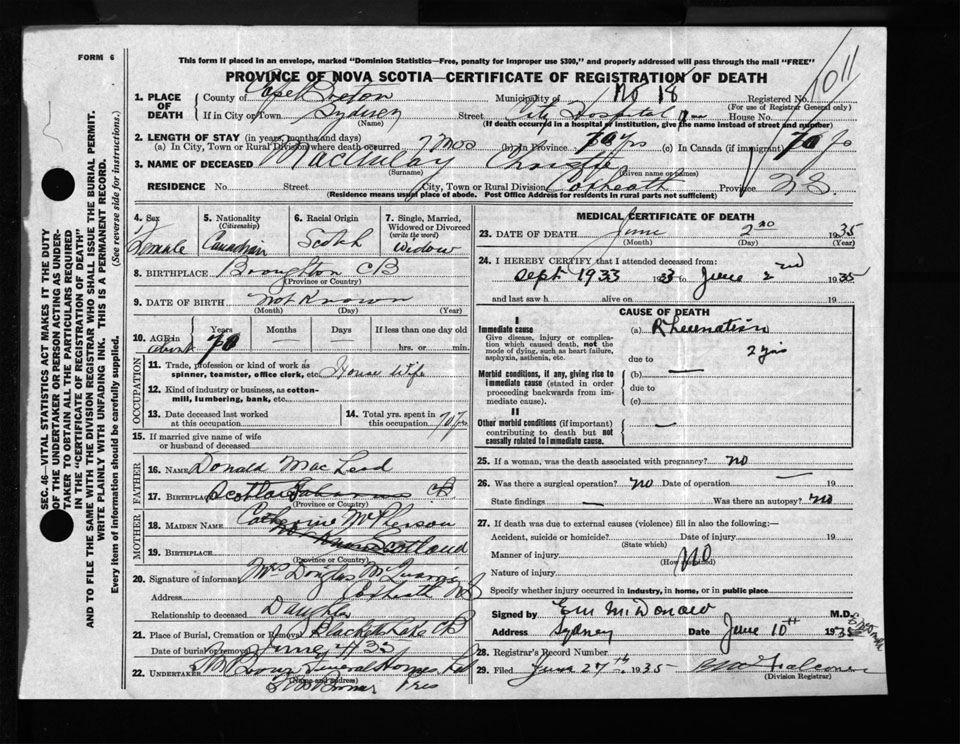 FORM 6
This form if placed in an envelope, marked "Dominion Statistics—Free, penalty for improper use $300," and properly addressed will pass through the mail "FREE"
PROVINCE OF NOVA SCOTIA—CERTIFICATE OF REGISTRATION OF DEATH
1011
1. PLACE OF DEATH
County of Cape Breton Municipality of No 18 Registered No.
(For use of Registrar General only)
If in City or Town Sydney Street City Hospital House No.
(Name) (If death occurred in a hospital or institution, give the name instead of street and number)
2. LENGTH OF STAY (in years, months and days)
(a) In City, Town or Rural Division where death occurred 7 mos (b) in Province 70 yrs (c) in Canada (if immigrant) 70
3. NAME OF DECEASED MacAulay Christy
(Surname) (Given name or names)
RESIDENCE No. Street City, Town or Rural Division Coxheath Province N.S.
(Residence means usual place of abode. Post Office Address for residents in rural parts not sufficient)
4. Sex Female
5. Nationality (Citizenship) Canadian
6. Racial Origin Scotch
7. Single, Married, Widowed or Divorced (write the word) Widow
8. BIRTHPLACE Broughton CB
(Province or Country)
9. DATE OF BIRTH Not Known
(Month) (Day) (Year)
10. AGE in Years Months Days If less than one day old
about 70 — — hrs. or min.
OCCUPATION
11. Trade, profession or kind of work as spinner, teamster, office clerk, etc. House Wife
12. Kind of industry or business, as cotton-mill, lumbering, bank, etc.
13. Date deceased last worked at this occupation
14. Total yrs. spent in this occupation 70 yrs
15. If married give name of wife or husband of deceased
FATHER
16. NAME Donald MacLeod
17. BIRTHPLACE CB
(Province or Country)
MOTHER
18. MAIDEN NAME Catherine McPherson
19. BIRTHPLACE Scotland
(Province or Country)
20. Signature of informant Mrs Douglas
Address Coxheath NS
Relationship to deceased Daughter
21. Place of Burial, Cremation or Removal Blacketts Lake CB
Date of burial or removal June 4 35
22. UNDERTAKER Funeral Homes Ltd
(Name and address)
Pres
MEDICAL CERTIFICATE OF DEATH
23. DATE OF DEATH June 2nd 1935
(Month) (Day) (Year)
24. I HEREBY CERTIFY that I attended deceased from:
Sept 1933 1933 to June 2nd 1935
and last saw h alive on 19
CAUSE OF DEATH
I
Immediate cause
Give disease, injury or complication which caused death, not the mode of dying, such as heart failure, asphyxia, asthenia, etc.
(a) Rheumatism
2 yrs
due to
Morbid conditions, if any, giving rise to immediate cause (stated in order proceeding backwards from immediate cause).
(b) —
due to
(c)
II
Other morbid conditions (if important) contributing to death but not causally related to immediate cause.
—
25. If a woman, was the death associated with pregnancy? no
26. Was there a surgical operation? no Date of operation — 19
State findings — Was there an autopsy? no
27. If death was due to external causes (violence) fill in also the following:—
Accident, suicide or homicide? Date of injury 19
(State which)
Manner of injury NO
(How sustained)
Nature of injury
Specify whether injury occurred in industry, in home, or in public place
Signed by E M McDonald M.D.
Address Sydney Date June 10th 1935
28. Registrar's Record Number
29. Filed June 27th 1935
(Division Registrar)
SEC. 46—VITAL STATISTICS ACT MAKES IT THE DUTY OF THE UNDERTAKER OR PERSON ACTING AS UNDERTAKER TO OBTAIN ALL THE PARTICULARS REQUIRED IN THE "CERTIFICATE OF REGISTRATION OF DEATH" AND TO FILE THE SAME WITH THE DIVISION REGISTRAR WHO SHALL ISSUE THE BURIAL PERMIT.
WRITE PLAINLY WITH UNFADING INK. THIS IS A PERMANENT RECORD.
Every item of information should be carefully supplied. (See reverse side for instructions.)